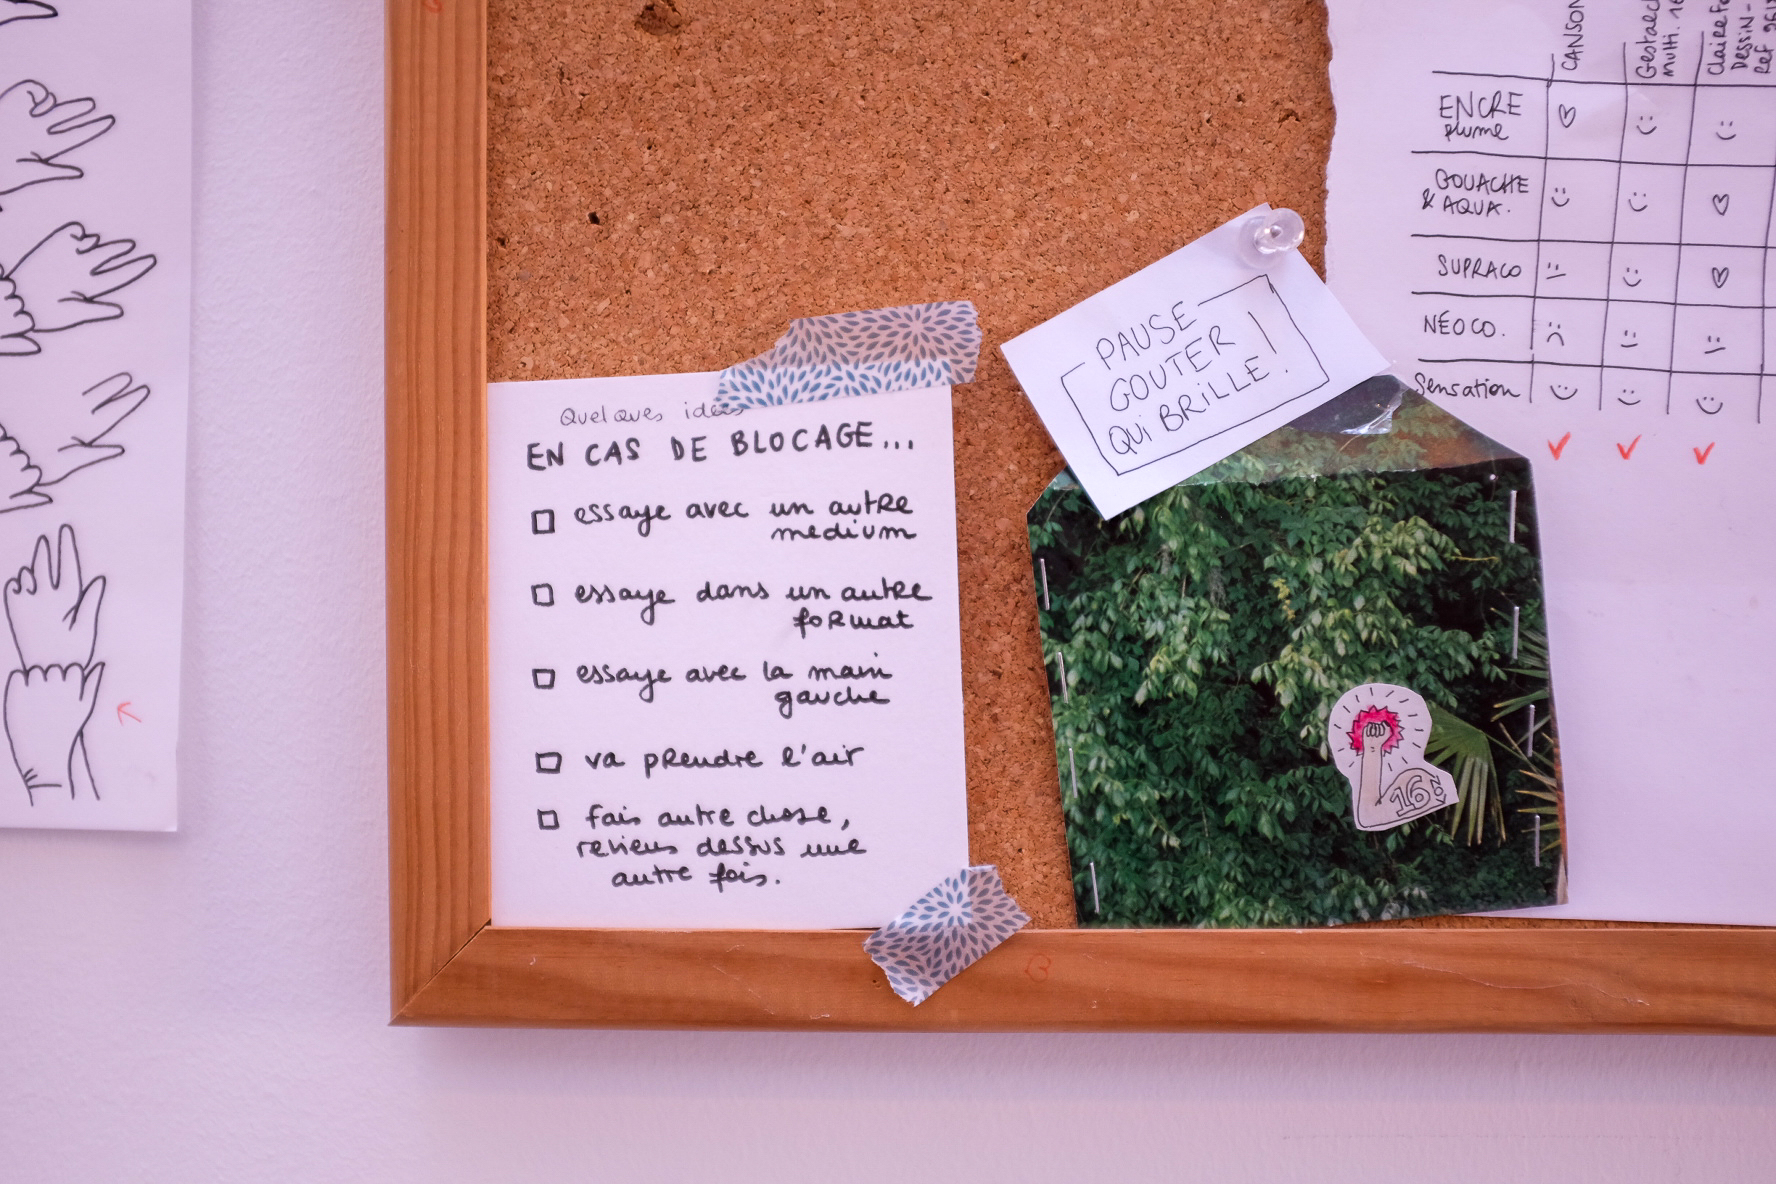 Quelques idées
EN CAS DE BLOCAGE...
essaye avec un autre
medium
essaye dans un autre
format
essaye avec la main
gauche
va prendre l'air
fais autre chose,
reviens dessus une
autre fois.
PAUSE
GOUTER
QUI BRILLE!
16
NOV
CANSON
multi. 16
Dessin-
Ref
ENCRE
plume
GOUACHE
& AQUA.
SUPRACO
NÉOCO.
Sensation